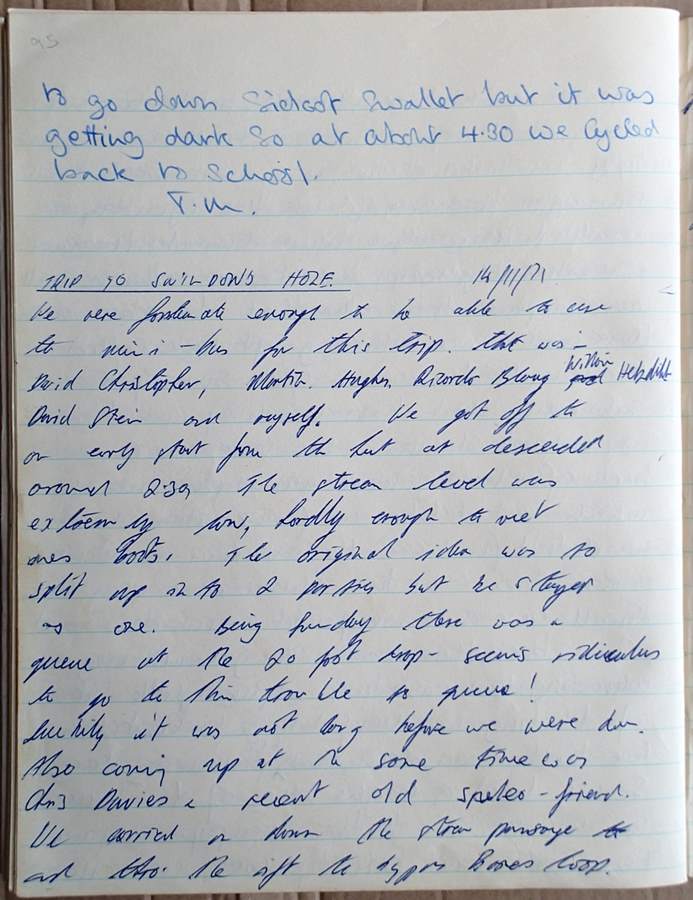 95
to go down Sidcot Swallet but it was
getting dark so at about 4.30 we Cycled
back to School.
T.M.
TRIP TO SWILDONS HOLE. 14/11/71.
We were fortunate enough to be able to use
the mini-bus for this trip. that was :-
David Christopher, Martin Hughes, Ricardo William
David Stein and myself. We got off to
an early start from the hut at descended
around 2.30 The stream level was
extremely low, hardly enough to wet
ones boots. The original idea was to
split up into 2 parties but we stayed
as one. Being Sunday there was a
queue at the 20 foot drop - seems ridiculus
to go to this trouble to queue!
luckily it was not long before we were down.
Also coming up at the same time was
Chris Davies a recent old speleo-friend.
We carried on down the stream passage
and thro' the rift to loop.